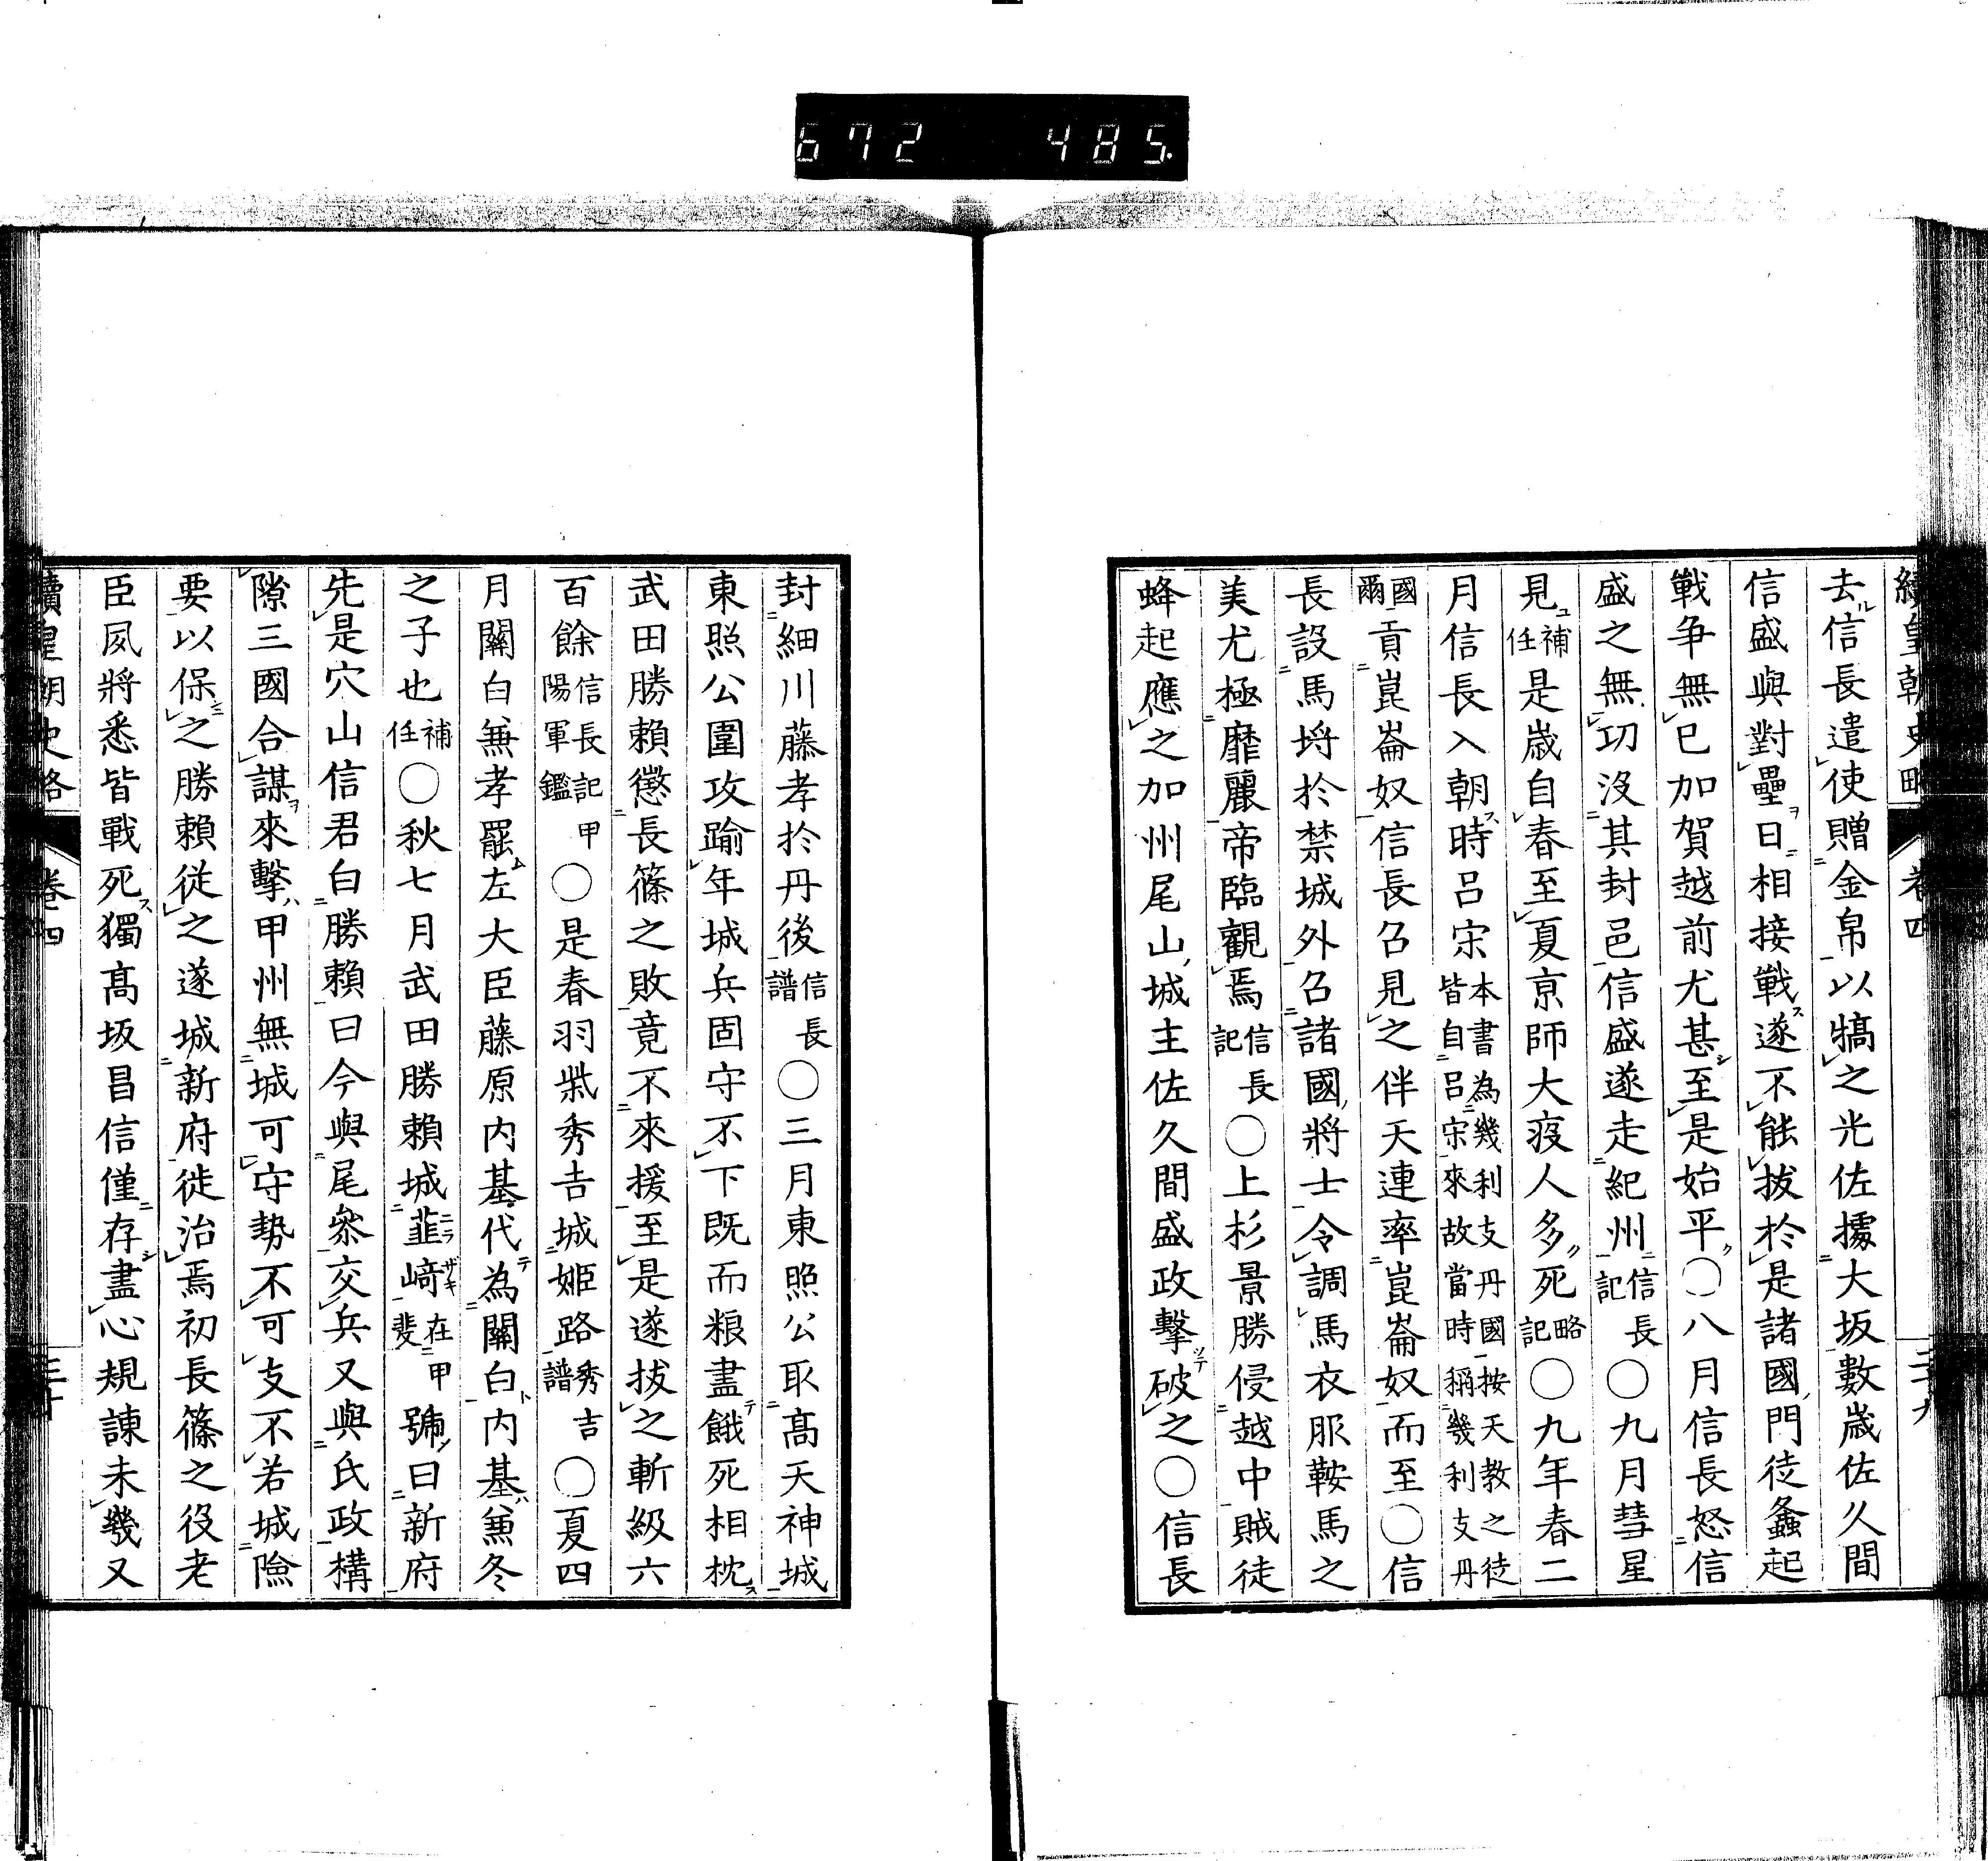 672 485.
續皇朝史略 卷四 二十九
去信長遣使贈金帛以犒之光佐據大坂數歲佐久間
信盛與對壘日相接戰遂不能拔於是諸國門徒蠭起
戰争無已加賀越前尤甚至是始平○八月信長怒信
盛之無功沒其封邑信盛遂走紀州信長記○九月彗星
見補任是歲自春至夏京師大疫人多死略記○九年春二
月信長入朝時呂宋本書為幾利支丹國按天教之徒皆自呂宋來故當時稱幾利支丹
國爾貢崑崙奴信長召見之伴天連率崑崙奴而至○信
長設馬埒於禁城外召諸國將士令調馬衣服鞍馬之
美尤極靡麗帝臨觀焉信長記○上杉景勝侵越中賊徒
蜂起應之加州尾山城主佐久間盛政擊破之○信長
封細川藤孝於丹後信長譜○三月東照公取髙天神城
東照公圍攻踰年城兵固守不下既而粮盡餓死相枕
武田勝賴懲長篠之敗竟不來援至是遂拔之斬級六
百餘信長記甲陽軍鑑○是春羽柴秀吉城姬路秀吉譜○夏四
月關白兼孝罷左大臣藤原内基代為關白内基兼冬
之子也補任○秋七月武田勝賴城韮﨑在甲斐號曰新府
先是穴山信君白勝賴曰今與尾參交兵又與氏政構
隙三國合謀來擊甲州無城可守勢不可支不若城險
要以保之勝賴從之遂城新府徙治焉初長篠之役老
臣夙將悉皆戰死獨髙坂昌信僅存盡心規諫未幾又
續皇朝史略 卷四 三十